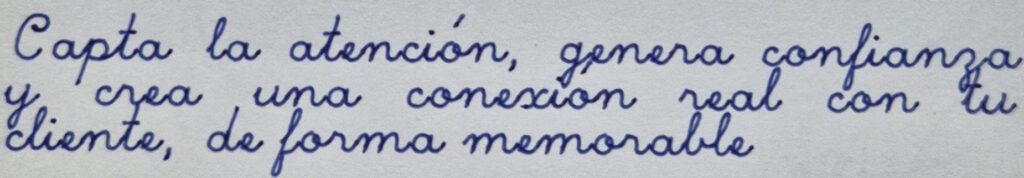 Capta la atención, genera confianza
y crea una conexion real con tu
cliente, de forma memorable